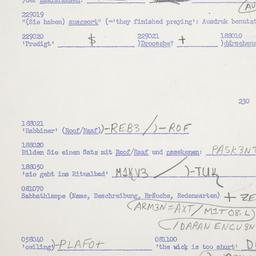 229019
"(Sie haben) ausgeort" (='they finished praying': Ausdruk
229020 229021 188010
'Predigt' $ )Droosche? +
230
188021
'Rabbiner' (Roof/Raaf)–REB3/)–ROF
188020
Bilden Sie einen Satz mit Roof/Raaf und paskenen: PASK3N
188050
'sie geht ins Ritualbad' M1KV3 )-TUK
081070
Sabbathlampe (Name, Beschreibung, Bräuche, Redensarten) +
(ARM3N=AXT/M1T08.L)
058040 081100
'ceiling')–PLAFOt 'the wick is too short'